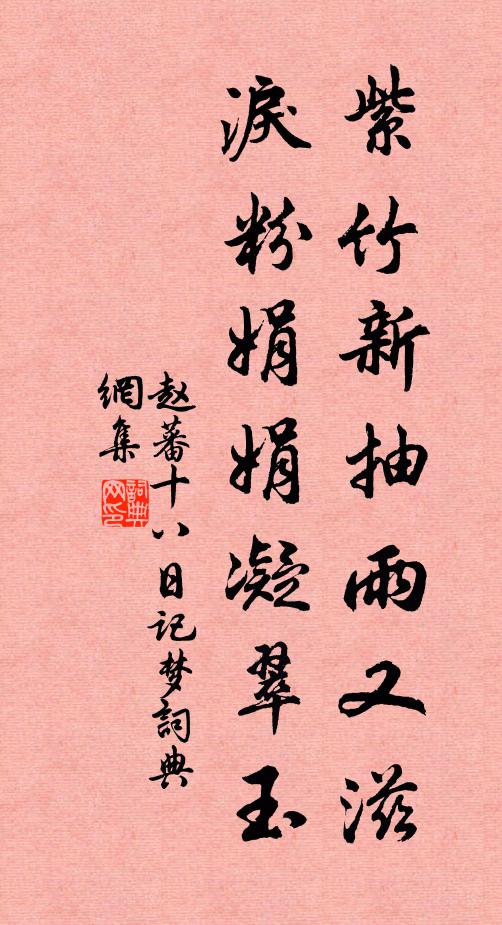 紫竹新抽雨又滋
淚粉娟娟凝翠玉
赵蕃十八日记梦詞典
網集
詞典
网印